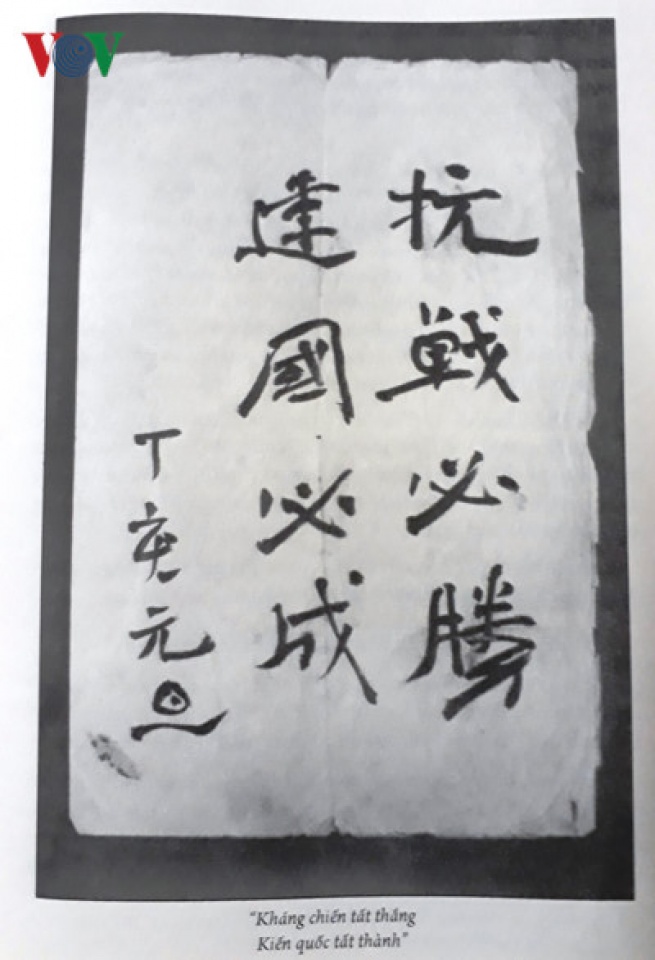 VOV
抗戦必勝
建國必成
丁亥元旦
“Kháng chiến tất thắng
Kiến quốc tất thành”